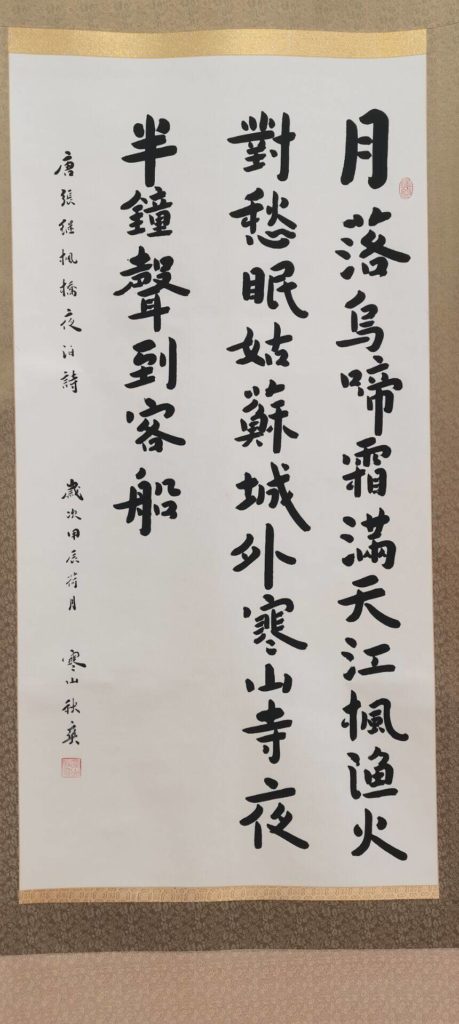 月落烏啼霜滿天江楓渔火
對愁眠姑蘇城外寒山寺夜
半鐘聲到客船
唐張继楓橋夜泊詩
歲次甲辰荷月 寒山秋爽